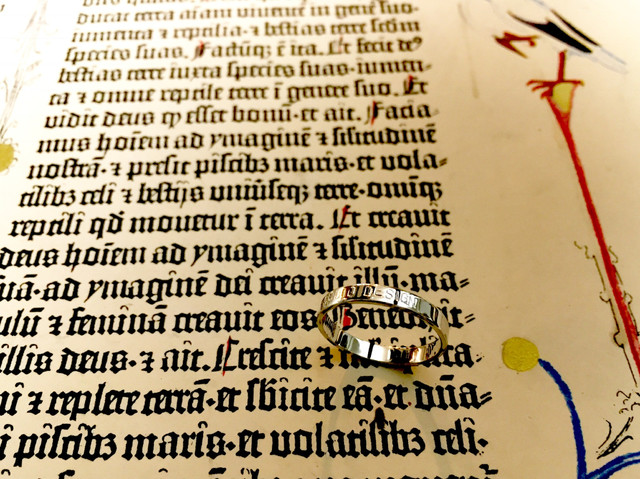 ducat terra aīam viventē in genē suo-
iumenta ⁊ reptilia·⁊ bestias terre scdm
species suas. Factūqʒ ē ita. Et fecit deꝰ
bestias terre iuxta species suas·iumen-
ta ⁊ omne reptile terre ī genere suo. Et
vidit deus ꝙ esset bonū·et ait. Facia-
mus hoīem ad ymaginē ⁊ silitudinē
nostrā·⁊ presit piscibʒ maris·et vola-
tilibʒ celi ⁊ bestijs univ̄seqʒ terre·omīqʒ
reptili qd̄ movetur ī terra. Et creavit
deus hoīem ad ymaginē ⁊ silitudinē
suā·ad ymaginē dei creavit illū·ma-
culū ⁊ feminā creavit eos. Benedixit-
illis deus·⁊ ait. Crescite ⁊
⁊ replete terrā·et sbicite eā·et dn̄a-
piscibʒ maris·et volatilibʒ celi·